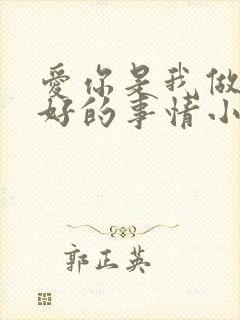 爱你是我做
好的事情小
郭正英